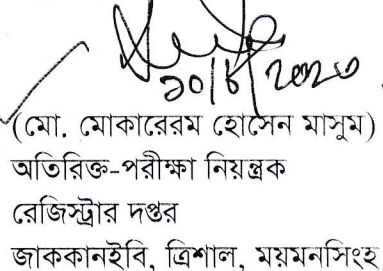 ১০/৮/২০২৩
(মো. মোকারেরম হোসেন মাসুম)
অতিরিক্ত-পরীক্ষা নিয়ন্ত্রক
রেজিস্ট্রার দপ্তর
জাককানইবি, ত্রিশাল, ময়মনসিংহ